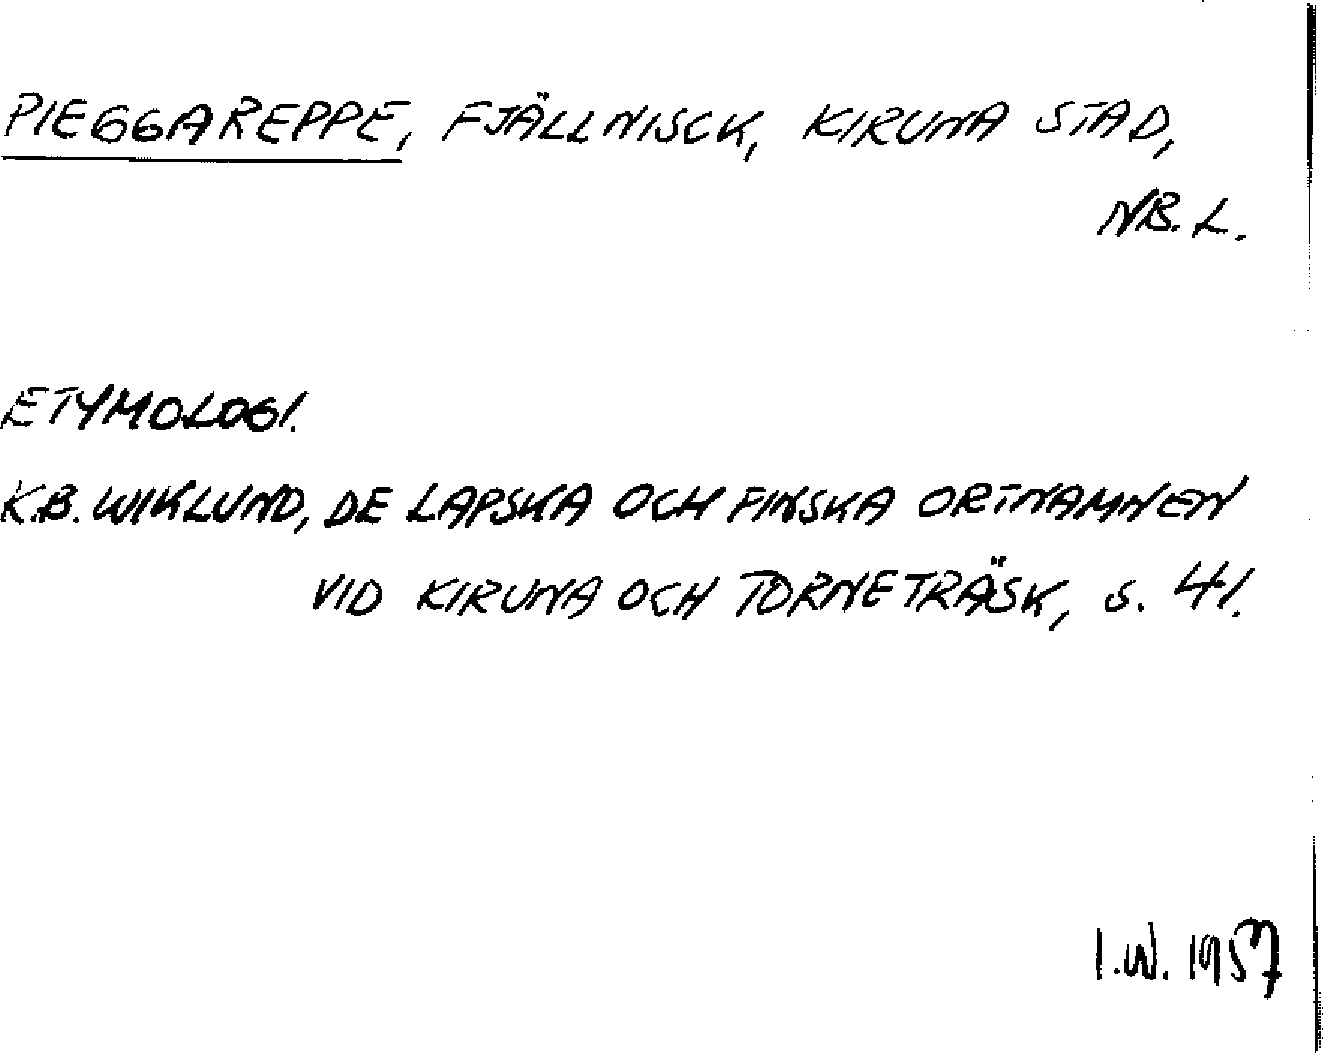 PIEGGAREPPE, FJÄLLNISCK, KIRUNA STAD,
NB. L.
ETYMOLOGI.
K.B. WIKLUND, DE LAPSKA OCH FINSKA ORTNAMNEN
VID KIRUNA OCH TORNETRÄSK, s. 41.
I.W. 1957